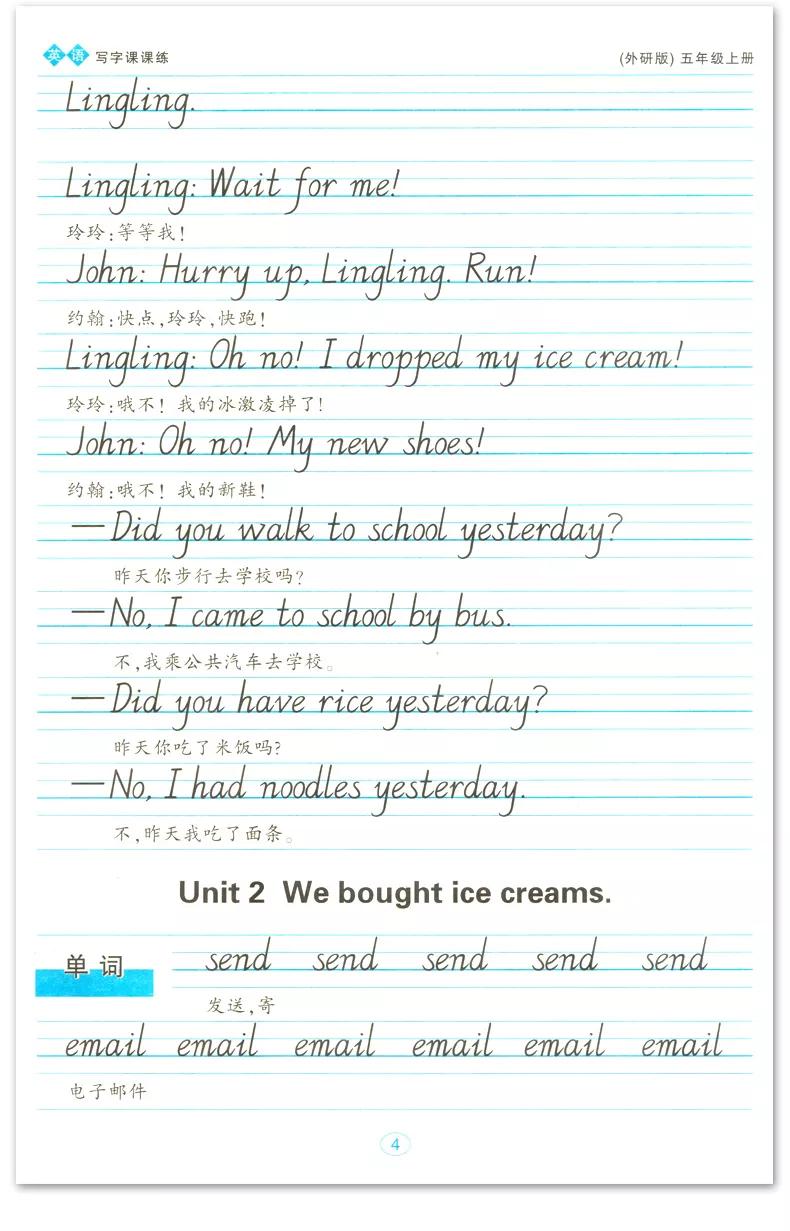 英语 写字课课练 (外研版) 五年级上册
Lingling.
Lingling: Wait for me!
玲玲:等等我!
John: Hurry up, Lingling. Run!
约翰:快点,玲玲,快跑!
Lingling: Oh no! I dropped my ice cream!
玲玲:哦不! 我的冰激凌掉了!
John: Oh no! My new shoes!
约翰:哦不! 我的新鞋!
—Did you walk to school yesterday?
昨天你步行去学校吗?
—No, I came to school by bus.
不,我乘公共汽车去学校。
—Did you have rice yesterday?
昨天你吃了米饭吗?
—No, I had noodles yesterday.
不,昨天我吃了面条。
Unit 2 We bought ice creams.
单词 send send send send send
发送,寄
email email email email email email
电子邮件
4